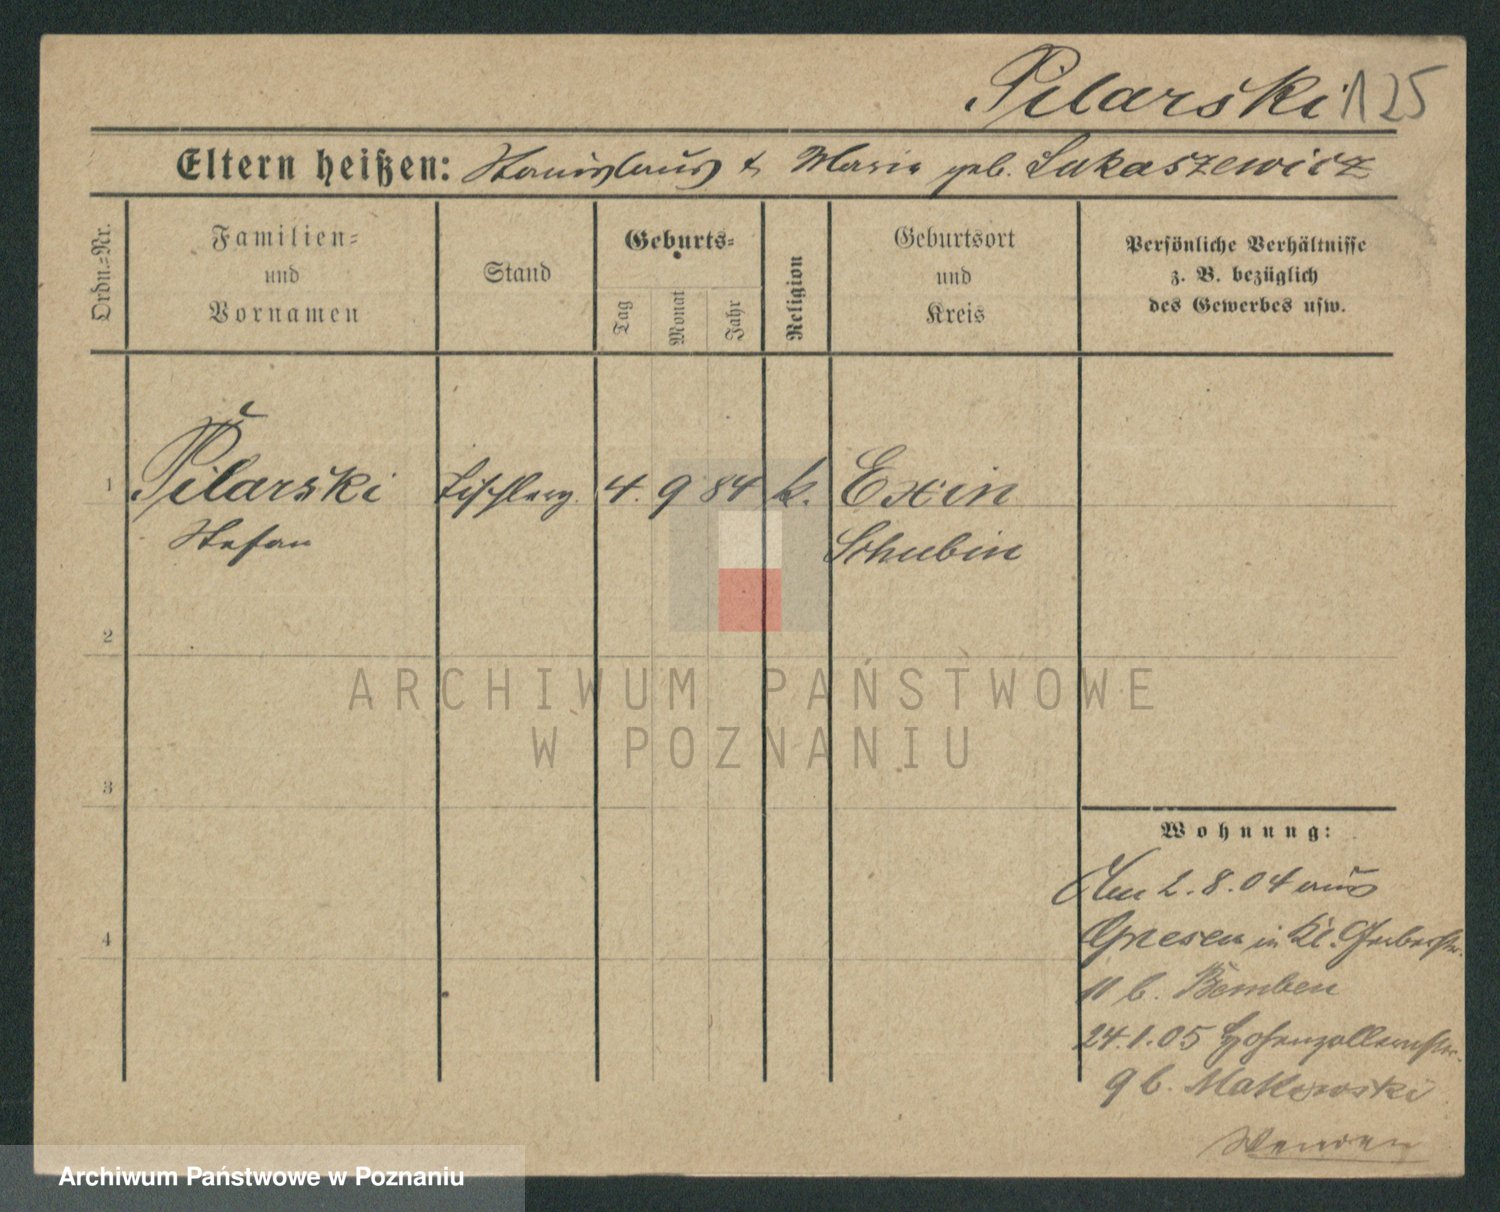 Pilarski 125
Eltern heißen: Stanislaus & Maria geb. Lukaszewicz
Ordn.-Nr.
Familien-
und
Vornamen
Stand
Geburts-
Tag
Monat
Jahr
Religion
Geburtsort
und
Kreis
Persönliche Verhältnisse
z. B. bezüglich
des Gewerbes usw.
1 Pilarski Tischlerg. 4. 9 84 k. Exin
Stefan Schubin
2
3
4
ARCHIWUM PAŃSTWOWE
W POZNANIU
Wohnung:
Am 2.8.04 aus
Gnesen in Kl. Gerberstr.
11 b. Bemben
24.1.05 Hohenzollernstr.
9 b. Matkowski
Wenden
Archiwum Państwowe w Poznaniu